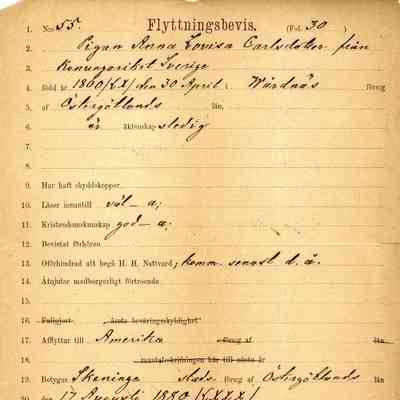 Flyttningsbevis.
1. N:o 55. (Fol. 30 )
2. Pigan Anna Lovisa Carlsdotter från
3. Konungariket Sverige
4. född år 1860 (LX) den 30 April i Wårdnäs förs:g
5. af Östergötlands län,
6. är äktenskap sledig
7.
8.
9. Har haft skyddskoppor
10. Läser innantill väl – a;
11. Kristendomskunskap god – a;
12. Bevistat förhören
13. Oförhindrad att begå H. H. Nattvard; komm. senast d. å.
14. Åtnjuter medborgerligt förtroende
15.
16. Fullgjort årets beväringsskyldighet
17. Afflyttar till Amerika förs:g af län
18. mantalsskrifningen här till nästa år
19. Betygas Skeninge Stads förs:g af Östergötlands län
20. den 17 Augusti 1880 (LXXX)